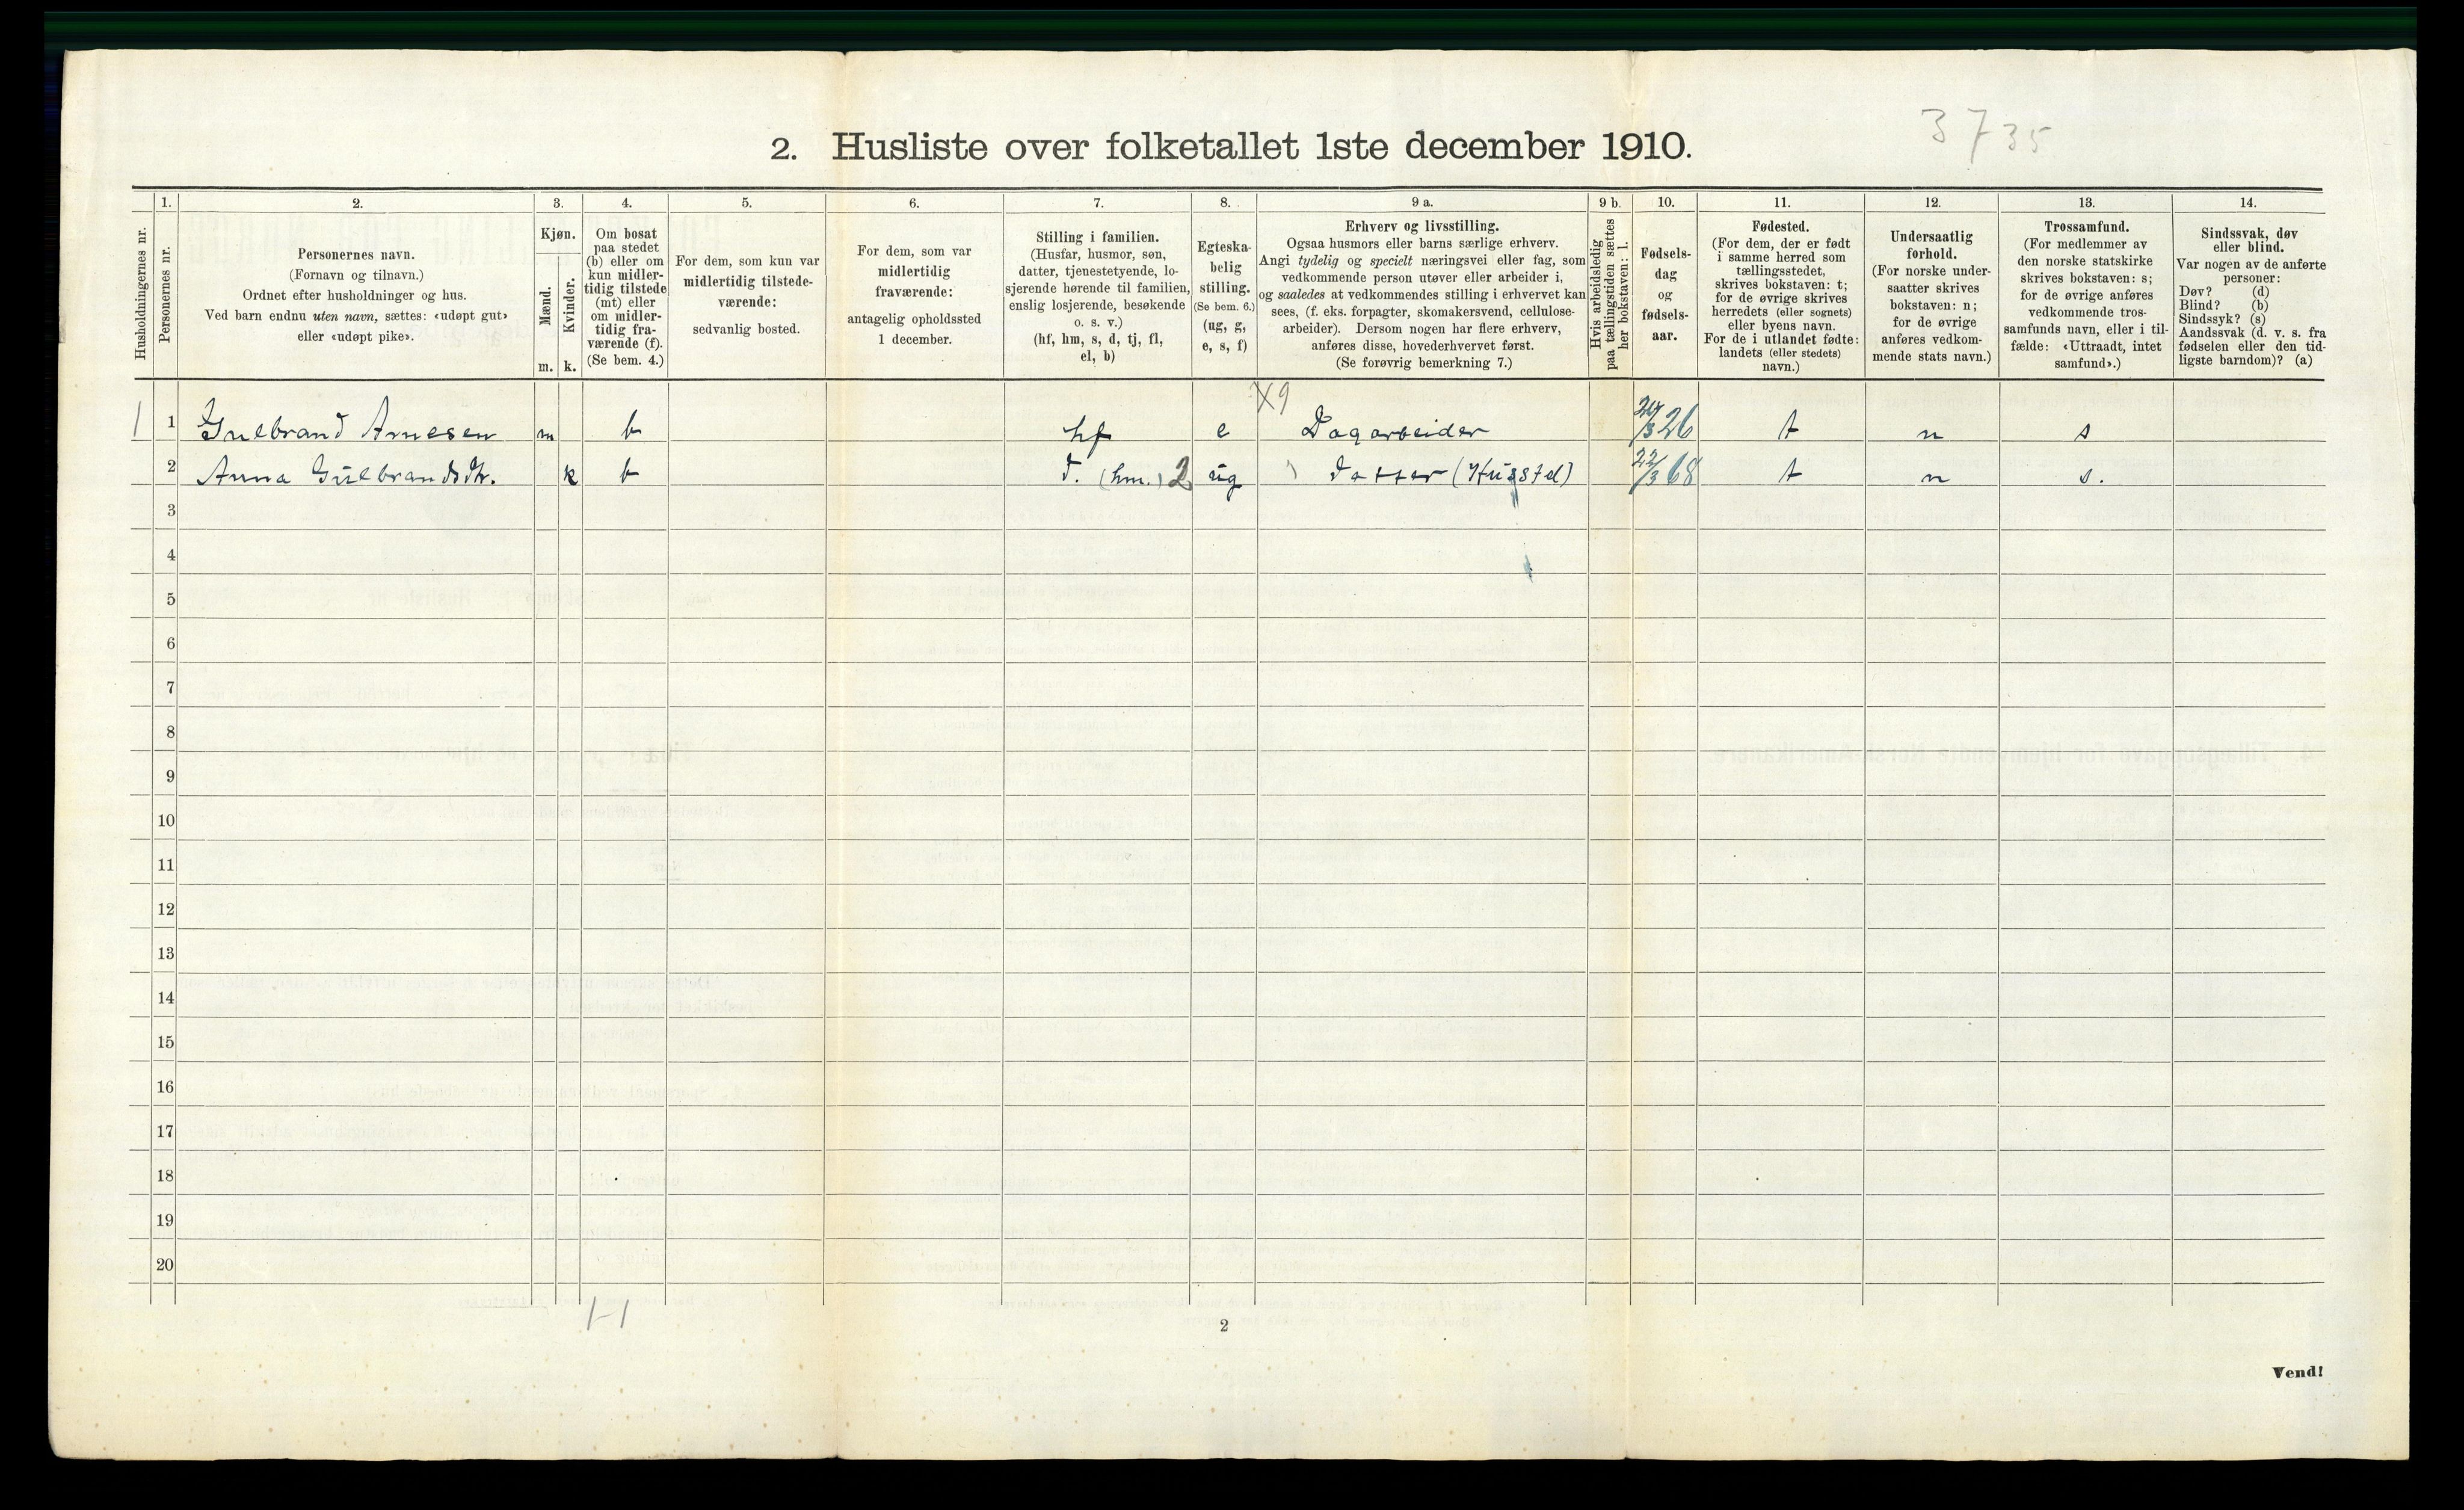 3735
2. Husliste over folketallet 1ste december 1910.
Husholdningernes nr.
1.
Personernes nr.
2.
Personernes navn.
(Fornavn og tilnavn.)
Ordnet efter husholdninger og hus.
Ved barn endnu uten navn, sættes: «udøpt gut»
eller «udøpt pike».
3.
Kjøn.
Mænd.
Kvinder.
m. k.
4.
Om bosat
paa stedet
(b) eller om
kun midler-
tidig tilstede
(mt) eller
om midler-
tidig fra-
værende (f).
(Se bem. 4.)
5.
For dem, som kun var
midlertidig tilstede-
værende:
sedvanlig bosted.
6.
For dem, som var
midlertidig
fraværende:
antagelig opholdssted
1 december.
7.
Stilling i familien.
(Husfar, husmor, søn,
datter, tjenestetyende, lo-
sjerende hørende til familien,
enslig losjerende, besøkende
o. s. v.)
(hf, hm, s, d, tj, fl,
el, b)
8.
Egteska-
belig
stilling.
(Se bem. 6.)
(ug, g,
e, s, f)
9 a.
Erhverv og livsstilling.
Ogsaa husmors eller barns særlige erhverv.
Angi tydelig og specielt næringsvei eller fag, som
vedkommende person utøver eller arbeider i,
og saaledes at vedkommendes stilling i erhvervet kan
sees, (f. eks. forpagter, skomakersvend, cellulose-
arbeider). Dersom nogen har flere erhverv,
anføres disse, hovederhvervet først.
(Se forøvrig bemerkning 7.)
9 b.
Hvis arbeidsledig
paa tællingstiden sættes
her bokstaven: l.
10.
Fødsels-
dag
og
fødsels-
aar.
11.
Fødested.
(For dem, der er født
i samme herred som
tællingsstedet,
skrives bokstaven: t;
for de øvrige skrives
herredets (eller sognets)
eller byens navn.
For de i utlandet fødte:
landets (eller stedets)
navn.)
12.
Undersaatlig
forhold.
(For norske under-
saatter skrives
bokstaven: n;
for de øvrige
anføres vedkom-
mende stats navn.)
13.
Trossamfund.
(For medlemmer av
den norske statskirke
skrives bokstaven: s;
for de øvrige anføres
vedkommende tros-
samfunds navn, eller i til-
fælde: «Uttraadt, intet
samfund».)
14.
Sindssvak, døv
eller blind.
Var nogen av de anførte
personer:
Døv? (d)
Blind? (b)
Sindssyk? (s)
Aandssvak (d. v. s. fra
fødselen eller den tid-
ligste barndom)? (a)
X9
1 1 Gulbrand Arnesen m b hf e Dagarbeider /3 26 t n s
2 Anna Gulbrandsdtr. k b d. (hm.) 2 ug datter (Husstel) 22/3 68 t n s.
3
4
5
6
7
8
9
10
11
12
13
14
15
16
17
18
19
20
1-1
2
Vend!